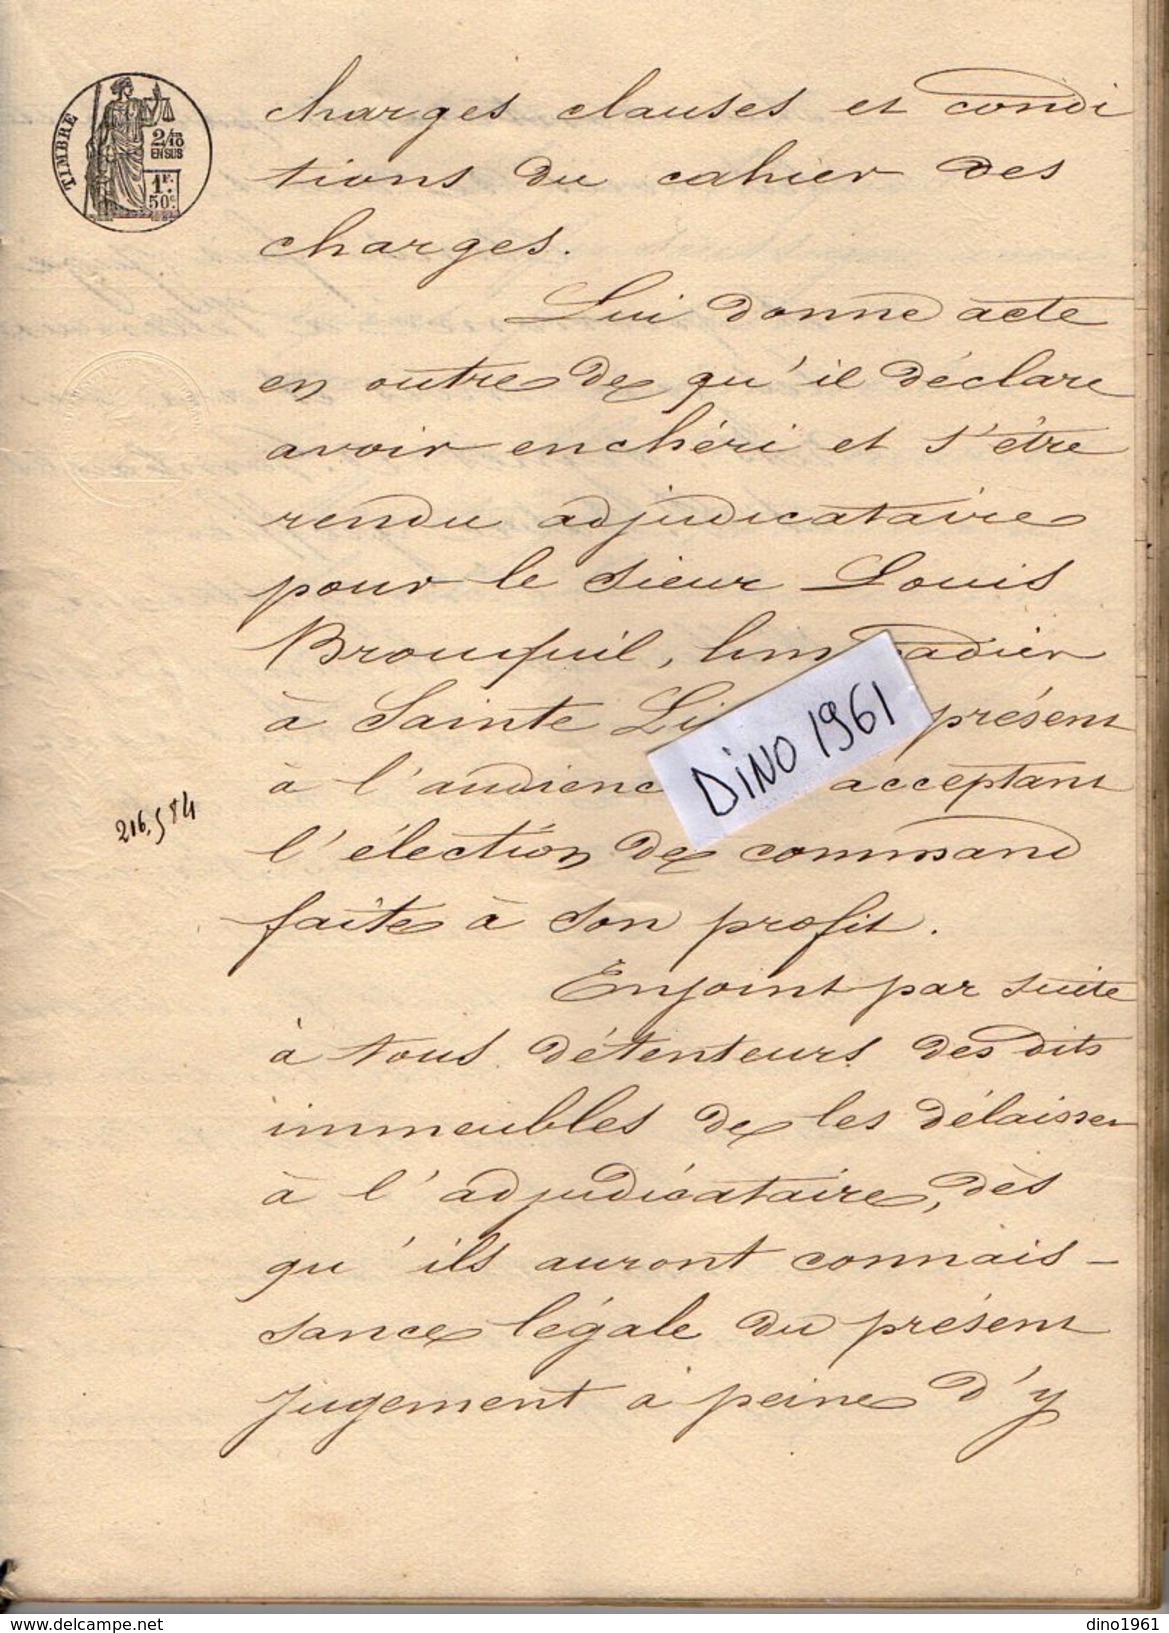 TIMBRE
2/10
EN SUS
1F.
50c.
charges clauses et condi
tions du cahier des
charges.
Lui donne acte
en outre de qu'il déclare
avoir enchéri et s'être
rendu adjudicataire
pour le sieur Louis
à Sainte Li présent
à l'audienc acceptant
l'élection de command
faite à son profit.
Enjoint par suite
à tous détenteurs des dits
immeubles de les délaisser
à l'adjudicataire, dès
qu'ils auront connais-
sance légale du présent
jugement à peine d'y
216.584
DINO 1961
delcampe.net
dino1961